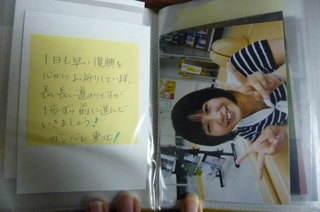 1日も早い復興を
心からお祈りしています。
長い長い道のりですが
1歩ずつ前に進んで
いきましょう!
ガンバレ 東北!